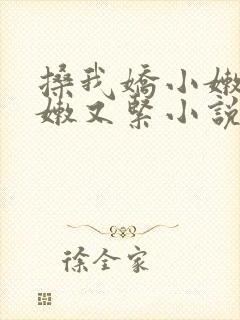 搡我嬌小嫩
嫩又緊小說
徐全家